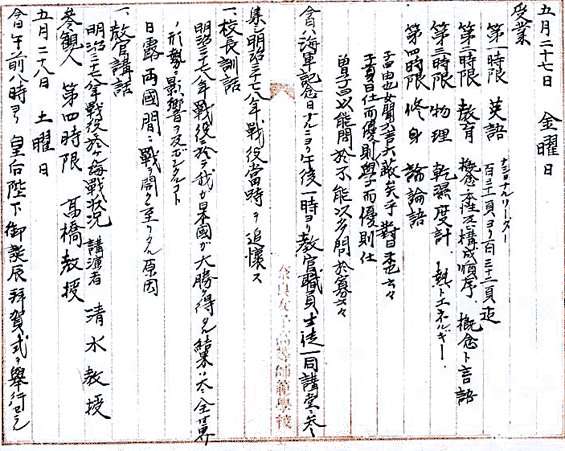 五月二十七日　金曜日
授業
第一時限　英語　ナショナルリーダー　百三十一頁ヨリ百三十二頁迄
第二時限　教育　概念ノ本性及構成順序　概念ト言語
第三時限　物理　乾湿度計　熱トエネルギー
第四時限　修身　論語
子曰由也女聞六言六蔽矣乎對曰未也云々
子夏曰仕而優則學學而優則仕
曾子曰以能問於不能以多問於寡云々
今日ハ海軍記念日ナルニヨリ午後一時ヨリ教官職員生徒一同講堂ニ参
集シ明治三十七八年戰役當時ヲ追懷ス
一、校長訓話
明治三十七八年戰役ニ於テ我ガ皇國ガ大勝ヲ得タル結果ハ全世界
ノ形勢ニ影響ヲ及ボシタルコト
日露両國間ニ戰ヲ開クニ至リタル原因
一、教官講話
明治三十七八年戰役ニ於ケル海戰状況　講演者　清水教授
参観人　第四時限　髙橋教授
五月二十八日　土曜日
今日午前八時ヨリ皇后陛下御誕辰拜賀式ヲ舉行セラレ
奈良女子高等師範學校